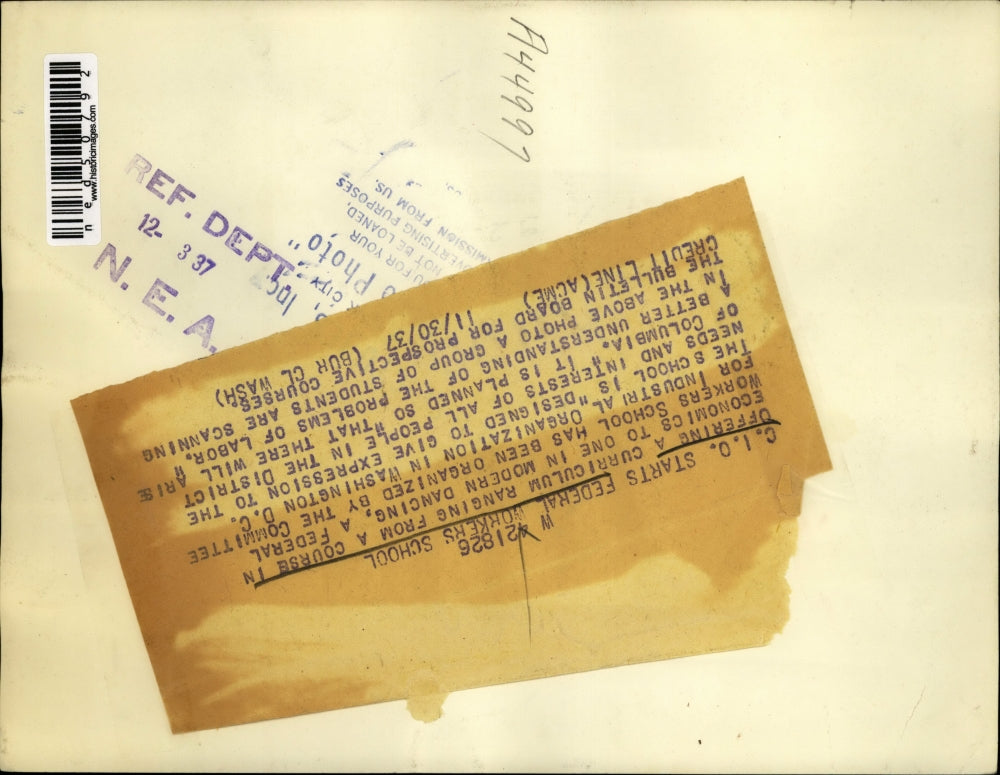 A44997
n e d 5 0 7 9 2
www.historicimages.com
REF. DEPT.
12- 3 37
N. E. A.
Photo"
Inc.
CITY
U FOR YOUR
NOT BE LOANED,
VERTISING PURPOSES
MISSION FROM US.
W 421826
C.I.O. STARTS FEDERAL WORKERS SCHOOL
OFFERING A CURRICULUM RANGING FROM A COURSE IN
ECONOMICS TO ONE IN MODERN DANCING, A FEDERAL
WORKERS SCHOOL HAS BEEN ORGANIZED BY THE COMMITTEE
FOR INDUSTRIAL ORGANIZATION IN WASHINGTON D.C.
THE SCHOOL IS "DESIGNED TO GIVE EXPRESSION TO THE
NEEDS AND INTERESTS OF ALL PEOPLE IN THE DISTRICT
OF COLUMBIA." IT IS PLANNED SO "THAT THERE WILL ARISE
A BETTER UNDERSTANDING OF THE PROBLEMS OF LABOR."
IN THE ABOVE PHOTO A GROUP OF STUDENTS ARE SCANNING
THE BULLETIN BOARD FOR PROSPECTIVE COURSES.
CREDIT LINE(ACME) 11/30/37 (BUR CL WASH)